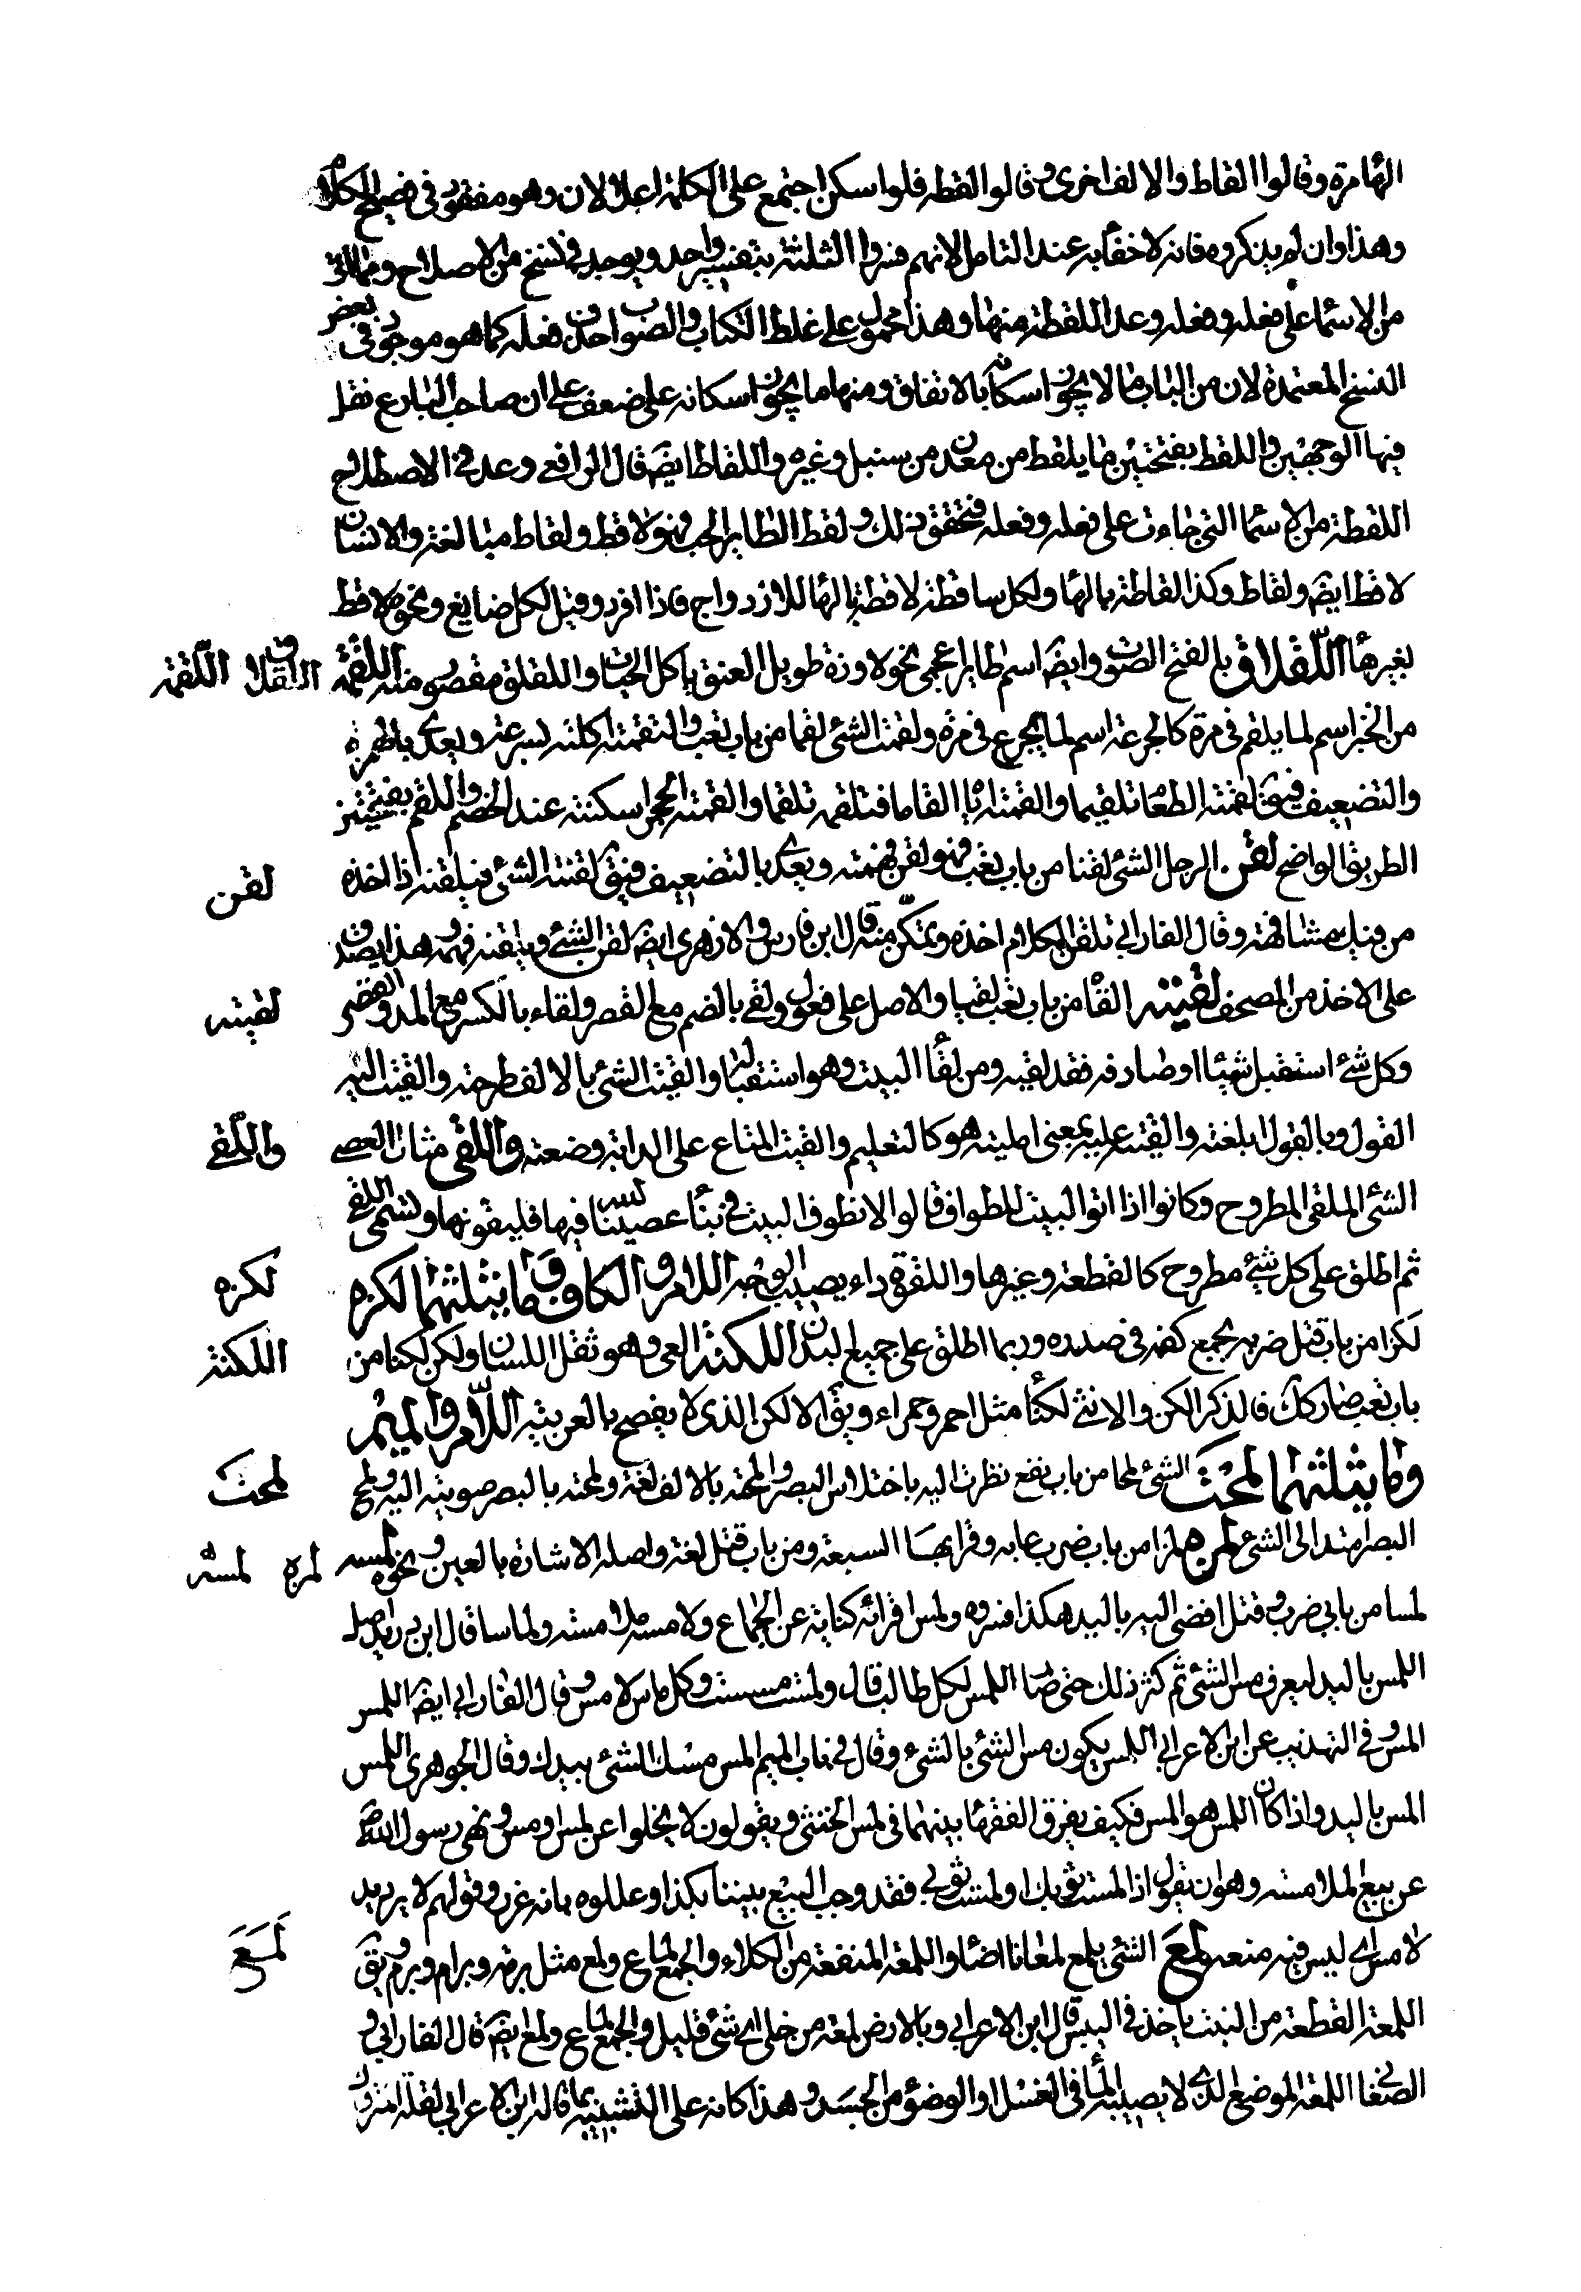 الهاء مرة وقالوا القاط والالف اخرى وقالوا لقطه فلو اسكن اجتمع على الكلمة اعلالان وهو مفقود فى فصيح الكلام
وهذا وان لم يذكروه فانه لا خفاء به عند التامل لانهم فسروا الثلثة بتفسير واحد ويوجد فى نسخ من الاصلاح ومما اتى
من الاسماء على فعله وفعله وعد اللقطة منها وهذا محمول على غلط الكتاب والصواب حذف فعله كما هو موجود فى بعض
النسخ المعتمدة لان من الباب ما لا يجوز اسكانه بالاتفاق ومنها ما يجوز اسكانه على ضعف على ان صاحب البارع نقل
فيها الوجهين واللقط بفتحتين ما يلقط من معدن من سنبل وغيره واللقاط ايضا قال الرافعى وعد فى الاصطلاح
اللقطة من الاسماء التى جاءت على فعله وفعله فتحقق ذلك ولقط الطاير الحب فهو لاقط ولقاط مبالغة والانسان
لاقط ايضا ولقاط وكذا لقاطة بالهاء ولكل ساقطة لاقطة بالهاء للازدواج فاذا افرد وقيل لكل ضايع ونحوه لاقط
بغير هاء اللقلاق بالفتح الصوت وايضا اسم طاير اعجمى نحو الاوزة طويل العنق ياكل الحيات واللقلق مقصور منه اللقمة اللقلاق اللقمة
من الخبز اسم لما يلقم فى مرة كالجرعة اسم لما يجرع فى مرة ولقمت الشئ لقما من باب تعب والتقمته اكلته بسرعة ويعدى بالهمزة
والتضعيف فيق لقمته الطعام تلقيما والقمته اياه القاما فتلقمه تلقما والقمته الحجر اسكته عند الخصام واللقم بفتحتين
الطريق الواضح لقن الرجل الشئ لقنا من باب تعب فهو لقن فهمته ويعدى بالتضعيف فيق لقنته الشئ فيلقنه اذا اخذه لقن
من فيك مشافهة وقال الفارابى تلقن الكلام اخذه وتمكن منه قال ابن فارس والازهرى ايضا لقن الشئ وتلقنه فهمه وهذا يصدق
على الاخذ من المصحف لقيته القاه من باب تعب لقيا والاصل على فعول ولقى بالضم مع القصر ولقاء بالكسر مع المد والقصر لقيته
وكل شئ استقبل شيئا او صادفه فقد لقيه ومن لقاء البيت وهو استقباله والقيت الشئ بالالف طرحته والقيت اليه
القول وبالقول ابلغته والقيته عليه بمعنى امليته وهو كالتعليم والقيت المتاع على الدابة وضعته واللقى مثال العصى واللقى
الشئ الملقى المطروح وكانوا اذا اتوا البيت للطواف قالوا لا نطوف البيت فى ثياب عصينا فيها فيلقونها وتسمى اللقى
ثم اطلق على كل شئ مطروح كاللقطة وغيرها واللقوة داء يصيب الوجه اللام والكاف وما يثلثهما لكزه لكزه
لكزا من باب قتل ضربه بجمع كفه فى صدره وربما اطلق على جميع البدن اللكنة العى وهو ثقل اللسان ولكن لكنا من اللكنة
باب تعب صار كذلك فالذكر الكن والانثى لكناء مثل احمر وحمراء ويق الالكن الذى لا يفصح بالعربية اللام والميم
وما يثلثهما لمحت الشئ لمحا من باب نفع نظرت اليه باختلاس البصر والمحته بالالف لغة ولمحته بالبصر صوبته اليه ولمح لمحت
البصر امتد الى الشئ لمزه لمزا من باب ضرب عابه وقرا بها السبعة ومن باب قتل لغة واصله الاشارة بالعين ونحوها لمسه لمزه لمسه
لمسا من بابى ضرب وقتل افضى اليه باليد هكذا فسروه ولمس امراته كناية عن الجماع ولامسه ملامسة ولماسا قال ابن دريد اصل
اللمس باليد ليعرف مس الشئ ثم كثر ذلك حتى صار اللمس لكل طالب قال ولمست مسست وكل ماس لامس وقال الفارابى ايضا اللمس
المس وفى التهذيب عن ابن الاعرابى اللمس يكون مس الشئ بالشئ وقال فى باب الميم المس مسك الشئ بيدك وقال الجوهرى اللمس
المس باليد واذا كان اللمس هو المس فكيف يفرق الفقهاء بينهما فى لمس الخنثى ويقولون لا يخلوا عن لمس او مس ونهى رسول الله
عن بيع الملامسة وهو ان يقول اذا لمست ثوبك او لمست ثوبى فقد وجب البيع بيننا بكذا وعللوه بانه غرر وقولهم لا يرد يد
لامس اى ليس فيه منعه لمع الشئ يلمع لمعانا اضاء واللمعة المنقعة من الكلاء والجمع لماع ولمع مثل برمة وبرام وبرم ويق لمع
اللمعة القطعة من النبت ياخذ فى اليبس قال ابن الاعرابى وبالارض لمعة من خلى اى شئ قليل والجمع لماع ولمع ايضا قال الفارابى و
الصغانى اللمعة الموضع الذى لا يصيبه الماء فى الغسل او الوضوء من الجسد وهذا كانه على التشبيه بما قاله ابن الاعرابى لقلة المتروك